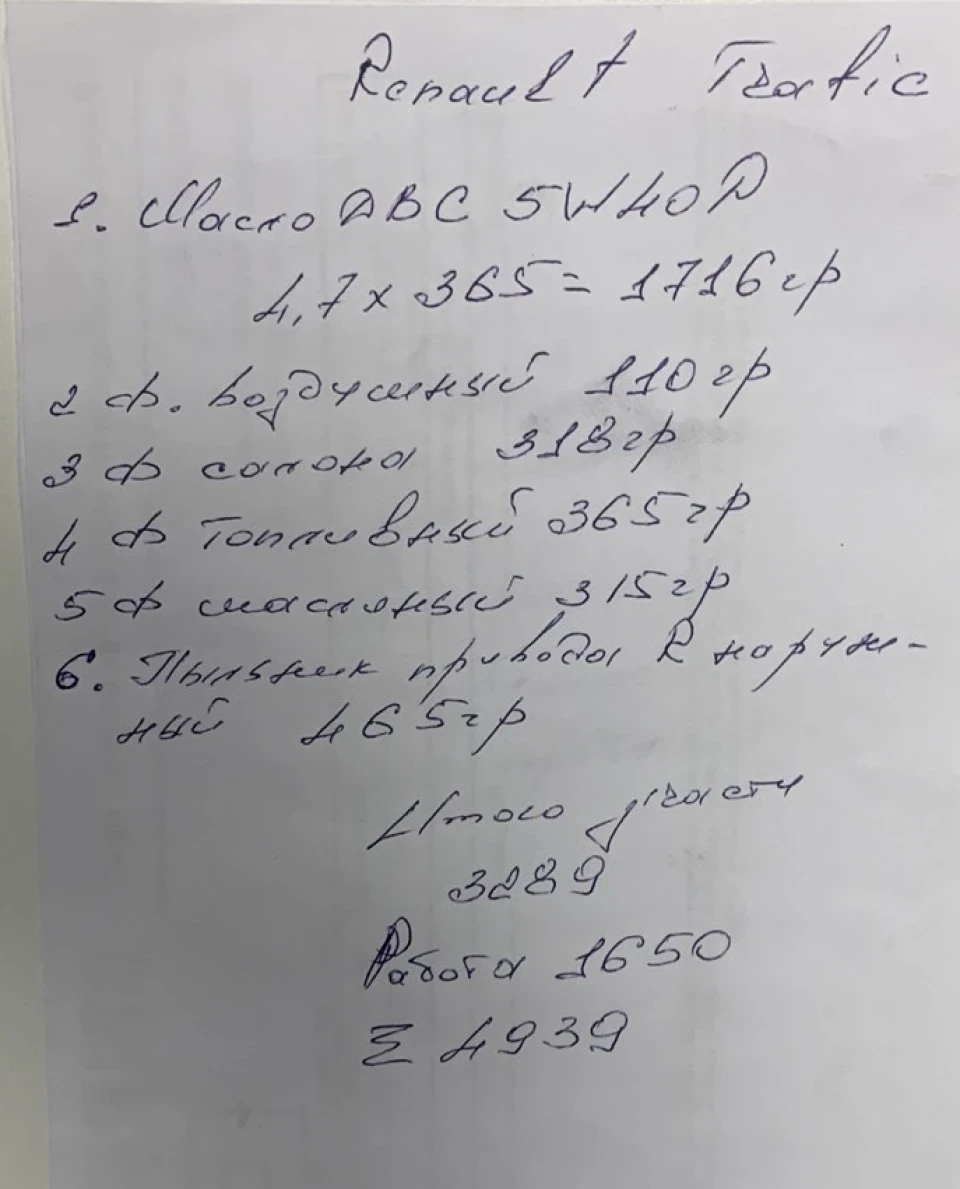 Renault Trafic
1. Масло ДВС 5W40Д
4,7 x 365 = 1716 гр
2 ф. воздушный 110 гр
3 ф салона 318 гр
4 ф топливный 365 гр
5 ф масляный 315 гр
6. Пыльник привода R наруж-
ный 465 гр
Итого з/части
3289
Работа 1650
Σ 4939